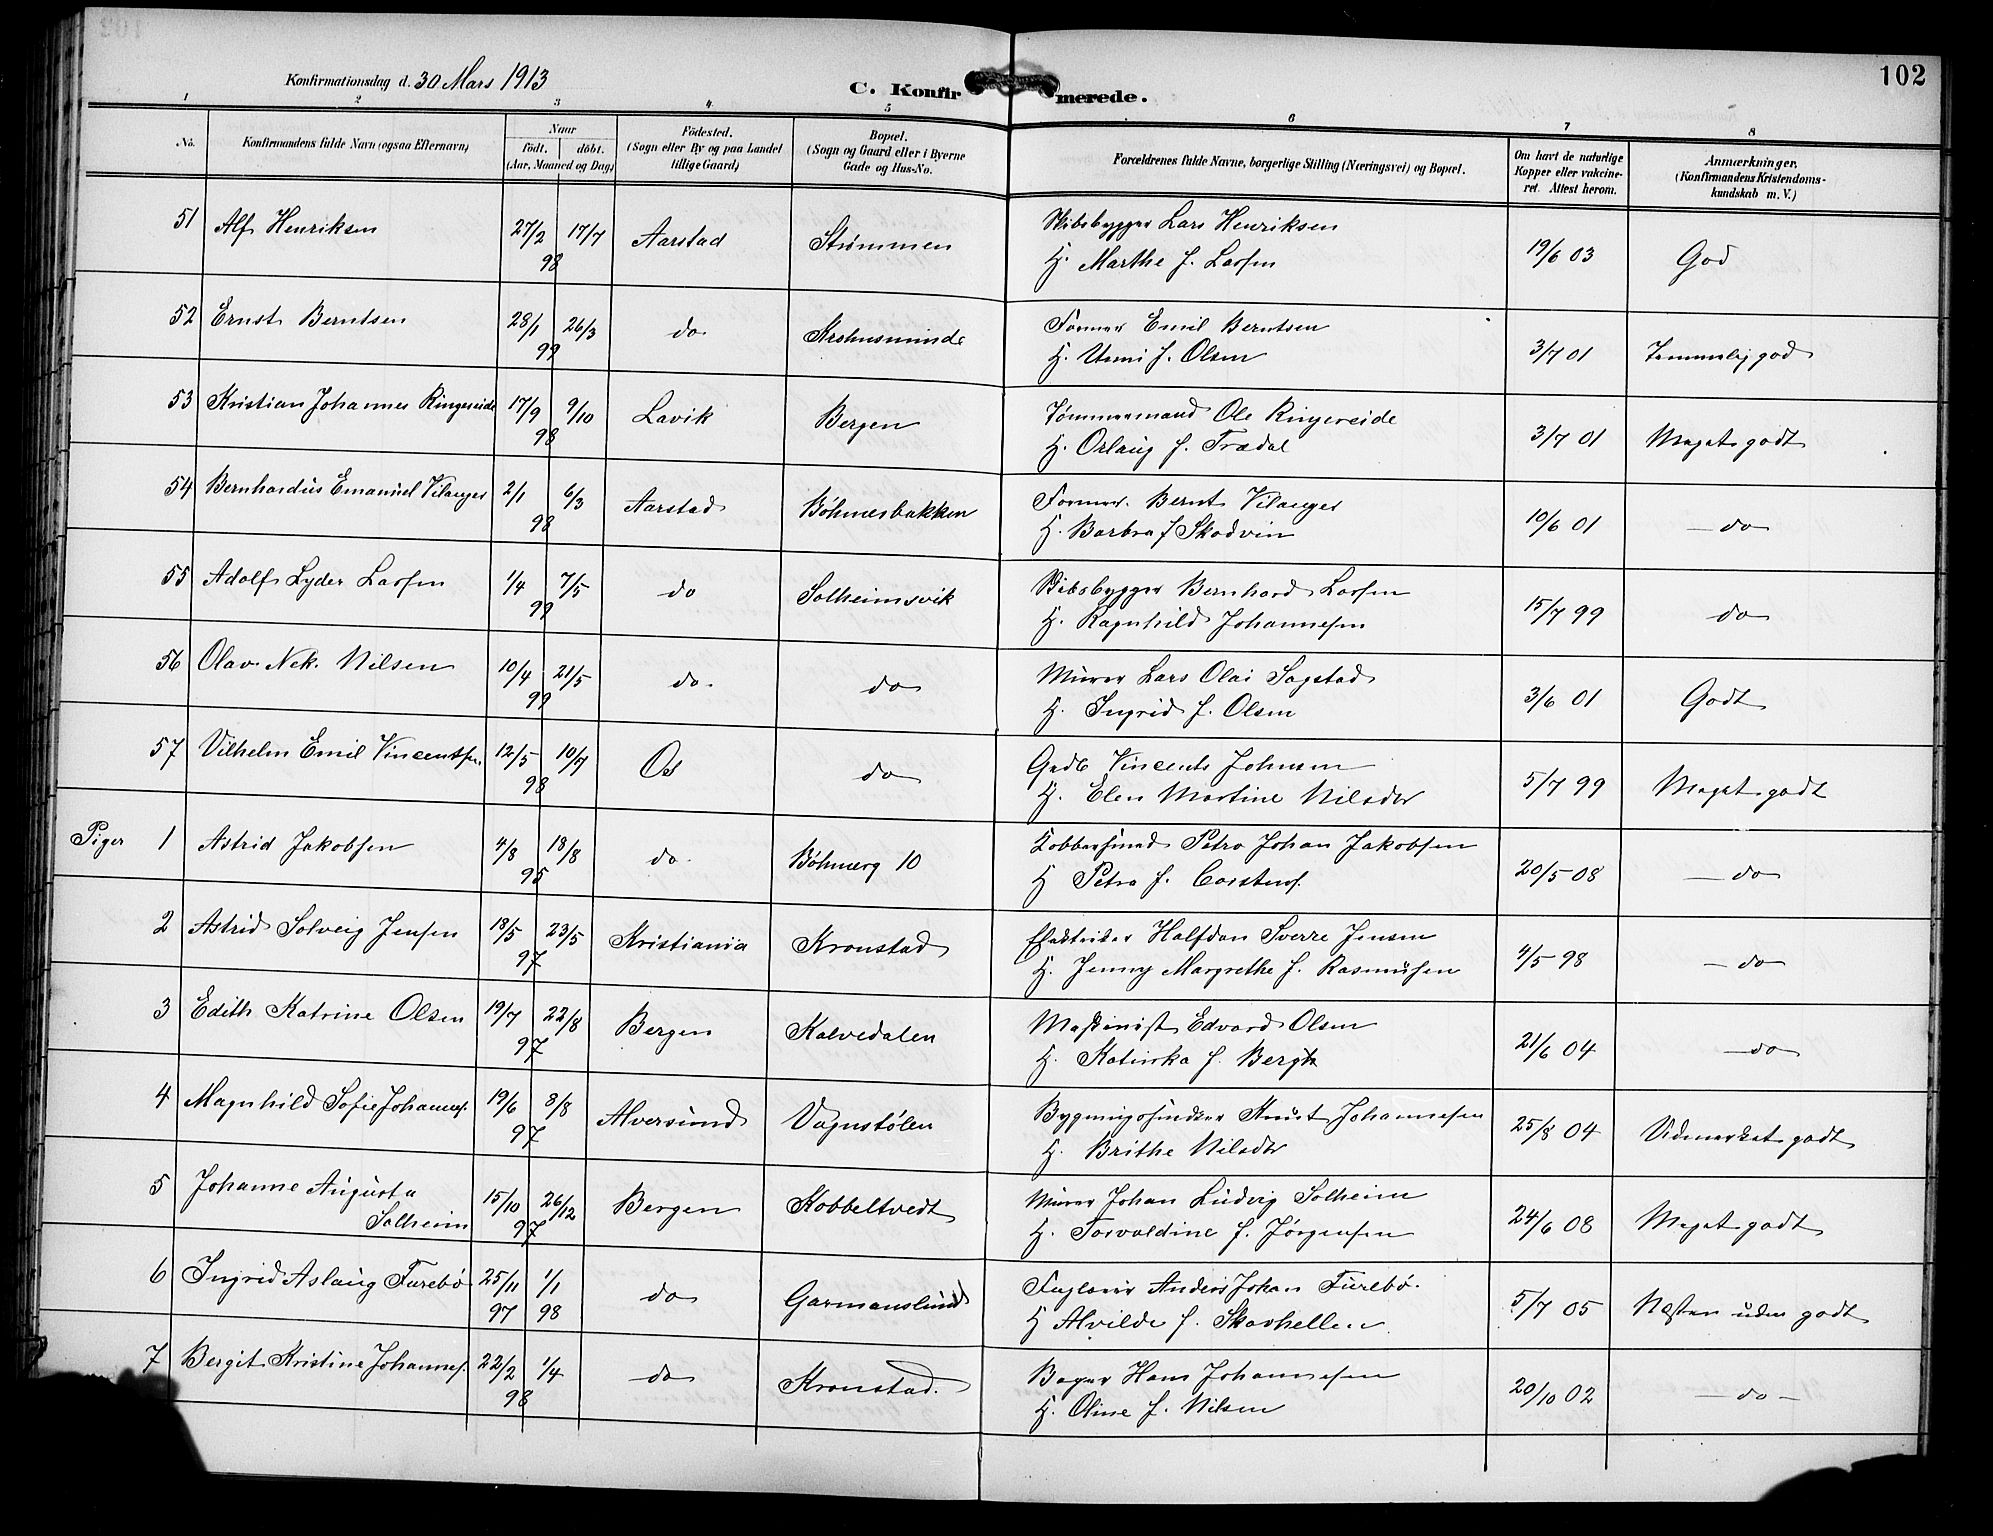 102
Konfirmationsdag d. 30 Mars 1913
C. Konfirmerede.
1 2 3 4 5 6 7 8
No. Konfirmandens fulde Navn (ogsaa Efternavn) Naar födt. döbt. (Aar, Maaned og Dag) Födested. (Sogn eller By og paa Landet tillige Gaard) Bopæl. (Sogn og Gaard eller i Byerne Gade og Hus-No. Forældrenes fulde Navne, borgerlige Stilling (Næringsvei) og Bopæl. Om havt de naturlige Kopper eller vakcineret. Attest herom. Anmærkninger, (Konfirmandens Kristendomskundskab m. V.)
51 Alf Henriksen 27/2 98 17/7 Aarstad Strømmen Skibsbygger Lars Henriksen 19/6 03 God
H. Marthe f. Larsen
52 Ernst Berntsen 28/1 99 26/3 do Former Emil Berntsen 3/7 01 Temmelig god
H. f. Olsen
53 Kristian Johannes Ringereide 17/9 98 9/10 Lavik Bergen Tømmermand Ole Ringereide 3/7 01 Meget godt
H. Orlaug f. Trædal
54 Bernhardus Emanuel Vilanger 2/1 98 6/3 Aarstad Böhmerbakken Former Bernt Vilanger 10/6 01 — do
H. Barbra f Skodvin
55 Adolf Lyder Larsen 1/4 99 7/5 do Solheimsvik Skibsbygger Bernhard Larsen 15/7 99 do
H. Ragnhild Johannesen
56 Olav Nek. Nilsen 10/4 99 21/5 do. do Murer Lars Olai Sagstad 3/6 01 Godt
H. Ingrid f. Olsen
57 Vilhelm Emil Vincentsen 12/5 98 10/7 Os do Gadb Vincents Johnsen 5/7 99 Meget godt
H. Elen Martine Nilsdtr
Piger 1 Astrid Jakobsen 4/8 95 18/8 do. Böhmerg 10 Kobbersmed Petro Johan Jakobsen 20/5 08 — do
H Petra f. Carstens.
2 Astrid Solveig Jensen 18/5 97 23/5 Kristiania Kronstad Elektriker Halfdan Sverre Jensen 4/5 98 — do
H. Jenny Margrethe f. Rasmusen
3 Edith Katrine Olsen 19/7 97 22/8 Bergen Kalvedalen Maskinist Edvard Olsen 21/6 04 — do
H. Katinka f. Bergh
4 Magnhild Sofie Johannes. 19/6 97 8/8 Alversund Vognstølen Bygningssnedker Knut Johannesen 25/8 04 Udmærket godt
H. Brithe Nilsdtr
5 Johanne Augusta Solheim 15/10 97 26/12 Bergen Kobbeltvedt Murer Johan Ludvig Solheim 24/6 08 Meget godt
H. Torvaldine f. Jørgensen
6 Ingrid Aslaug Furebø 25/11 97 1/1 98 do Garmanslund Anders Johan Furebø. 5/7 05 Næsten uden godt
H Alvilde f. Skarhellen
7 Bergit Kristine Johannes. 22/2 98 1/4 do Kronstad. Bager Hans Johannesen 20/10 02 — do —
H. Oline f. Nilsen